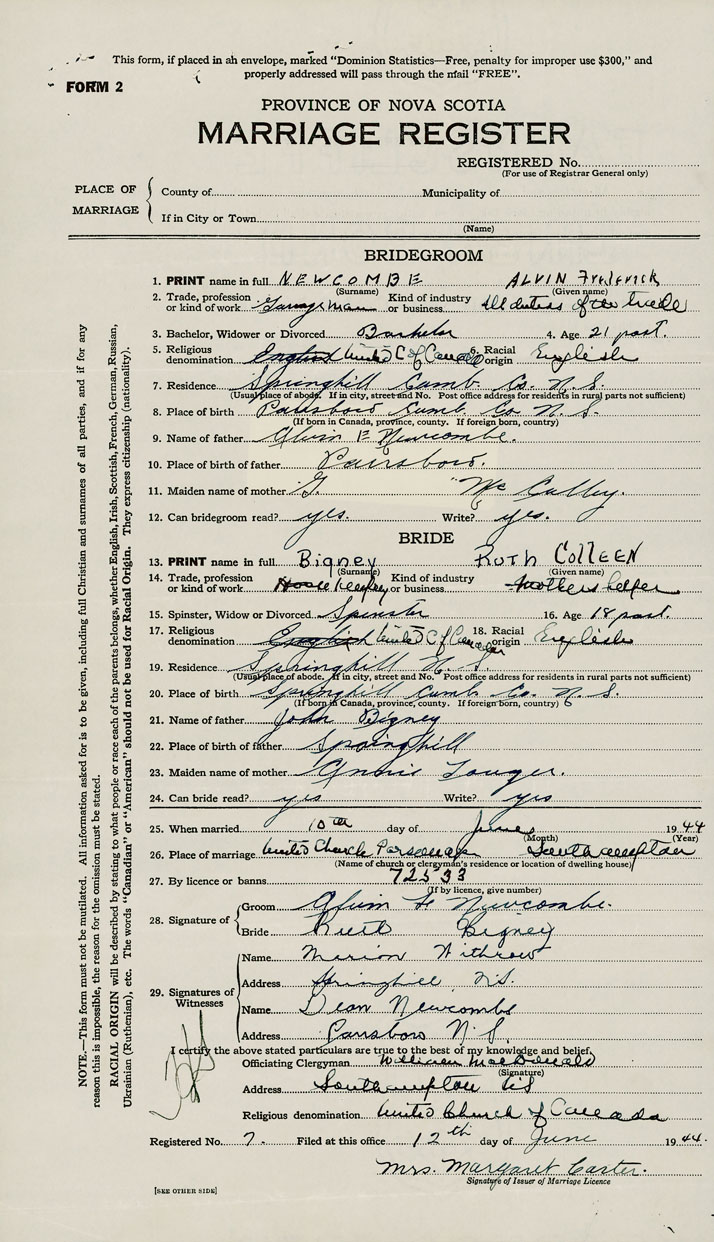 This form, if placed in an envelope, marked “Dominion Statistics—Free, penalty for improper use $300,” and
properly addressed will pass through the mail “FREE”.
FORM 2
PROVINCE OF NOVA SCOTIA
MARRIAGE REGISTER
REGISTERED No.
(For use of Registrar General only)
PLACE OF MARRIAGE
County of Municipality of
If in City or Town
(Name)
BRIDEGROOM
1. PRINT name in full NEWCOMBE ALVIN Frederick
(Surname) (Given name)
2. Trade, profession or kind of work Kind of industry or business All duties of the trade
3. Bachelor, Widower or Divorced Bachelor 4. Age 21 past.
5. Religious denomination England United C of Canada 6. Racial origin English
7. Residence Springhill Cumb. Co. N. S.
(Usual place of abode. If in city, street and No. Post office address for residents in rural parts not sufficient)
8. Place of birth Parrsboro Cumb. Co. N. S.
(If born in Canada, province, county. If foreign born, country)
9. Name of father Alvin E Newcombe.
10. Place of birth of father Parrsboro.
11. Maiden name of mother G. McCulley.
12. Can bridegroom read? yes. Write? yes.
BRIDE
13. PRINT name in full Bigney RUTH COLLEEN
(Surname) (Given name)
14. Trade, profession or kind of work House Keeping Kind of industry or business Mothers helper
15. Spinster, Widow or Divorced Spinster 16. Age 18 past.
17. Religious denomination English United C of Canada 18. Racial origin English
19. Residence Springhill N. S.
(Usual place of abode. If in city, street and No. Post office address for residents in rural parts not sufficient)
20. Place of birth Springhill Cumb Co. N. S.
(If born in Canada, province, county. If foreign born, country)
21. Name of father John Bigney
22. Place of birth of father Springhill
23. Maiden name of mother Annie
24. Can bride read? yes Write? yes
25. When married 10th day of June 1944
(Month) (Year)
26. Place of marriage United Church Parsonage Southampton
(Name of church or clergyman's residence or location of dwelling house)
27. By licence or banns 72533
(If by licence, give number)
28. Signature of
Groom Alvin F Newcombe.
Bride Ruth Bigney
29. Signatures of Witnesses
Name Marion Withrow
Address Springhill N.S.
Name Dean Newcombe
Address Parrsboro N. S.
I certify the above stated particulars are true to the best of my knowledge and belief.
Officiating Clergyman William MacDonald
(Signature)
Address Southampton NS
Religious denomination United Church of Canada
Registered No. 7. Filed at this office 12th day of June 1944.
Mrs. Margaret Carter.
Signature of Issuer of Marriage Licence
[SEE OTHER SIDE]
NOTE.—This form must not be mutilated. All information asked for is to be given, including full Christian and surnames of all parties, and if for any
reason this is impossible, the reason for the omission must be stated.
RACIAL ORIGIN will be described by stating to what people or race each of the parents belongs, whether English, Irish, Scottish, French, German, Russian,
Ukrainian (Ruthenian), etc. The words “Canadian” or “American” should not be used for Racial Origin. They express citizenship (nationality).